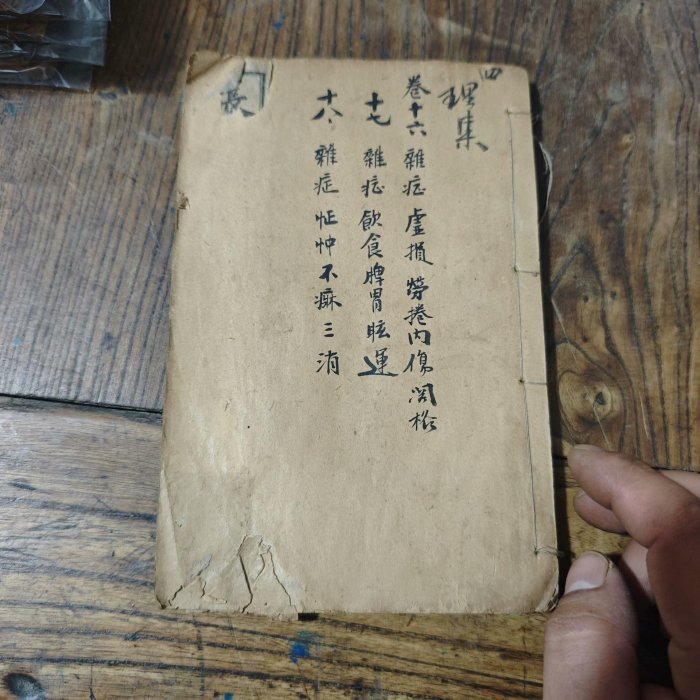 四
理集
卷十六 雜症 虛損 勞捲内傷 関格
十七 雜症 飲食脾胃眩運
十八、雜症 怔忡不寐三消